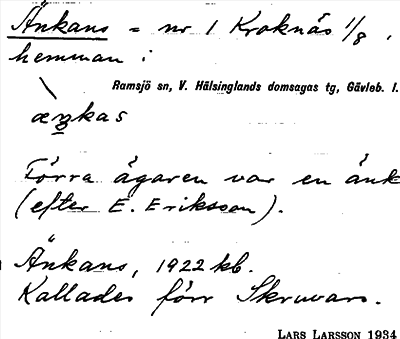 Änkans = nr 1 Kroknäs 1/8
hemman :
Ramsjö sn, V. Hälsinglands domsagas tg, Gävleb. l.
æŋkas
Förra ägaren var en änk
(efter E. Eriksson).
Änkans, 1922 kb.
Kallades förr Skruvars.
LARS LARSSON 1934